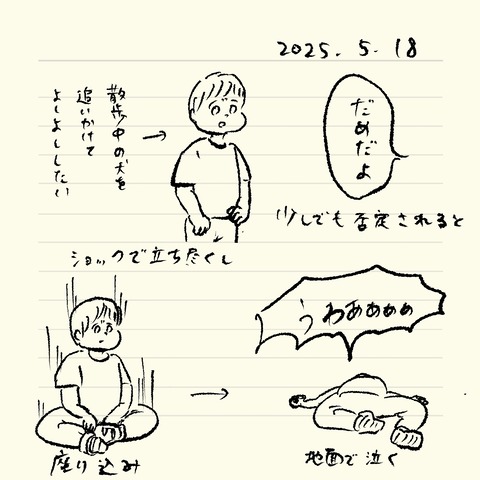 2025. 5. 18
だめだよ
少しでも否定されると
散歩中の犬を
追いかけて
よしよししたい
ショックで立ち尽くし
座り込み
うわあぁぁぁ
地面で泣く